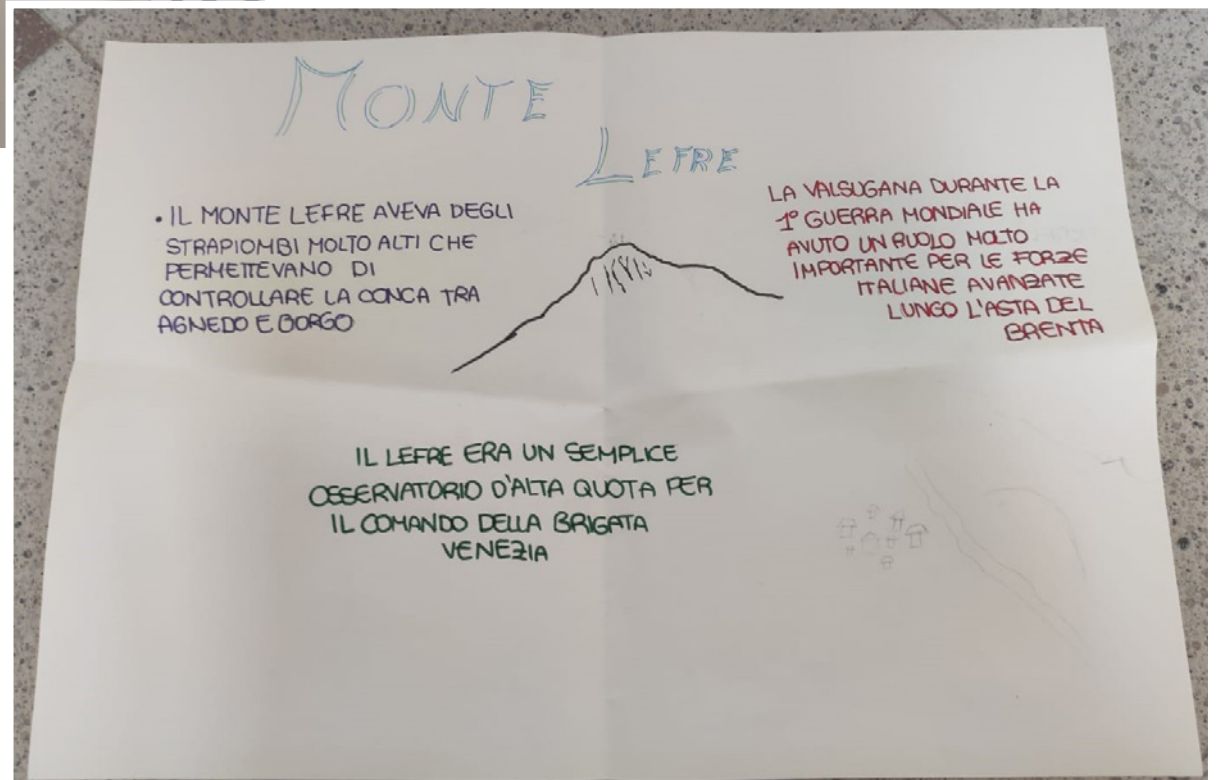 MONTE
LEFRE
• IL MONTE LEFRE AVEVA DEGLI
STRAPIOMBI MOLTO ALTI CHE
PERMETTEVANO DI
CONTROLLARE LA CONCA TRA
AGNEDO E BORGO
LA VALSUGANA DURANTE LA
1° GUERRA MONDIALE HA
AVUTO UN RUOLO MOLTO
IMPORTANTE PER LE FORZE
ITALIANE AVANZATE
LUNGO L'ASTA DEL
BRENTA
IL LEFRE ERA UN SEMPLICE
OSSERVATORIO D'ALTA QUOTA PER
IL COMANDO DELLA BRIGATA
VENEZIA